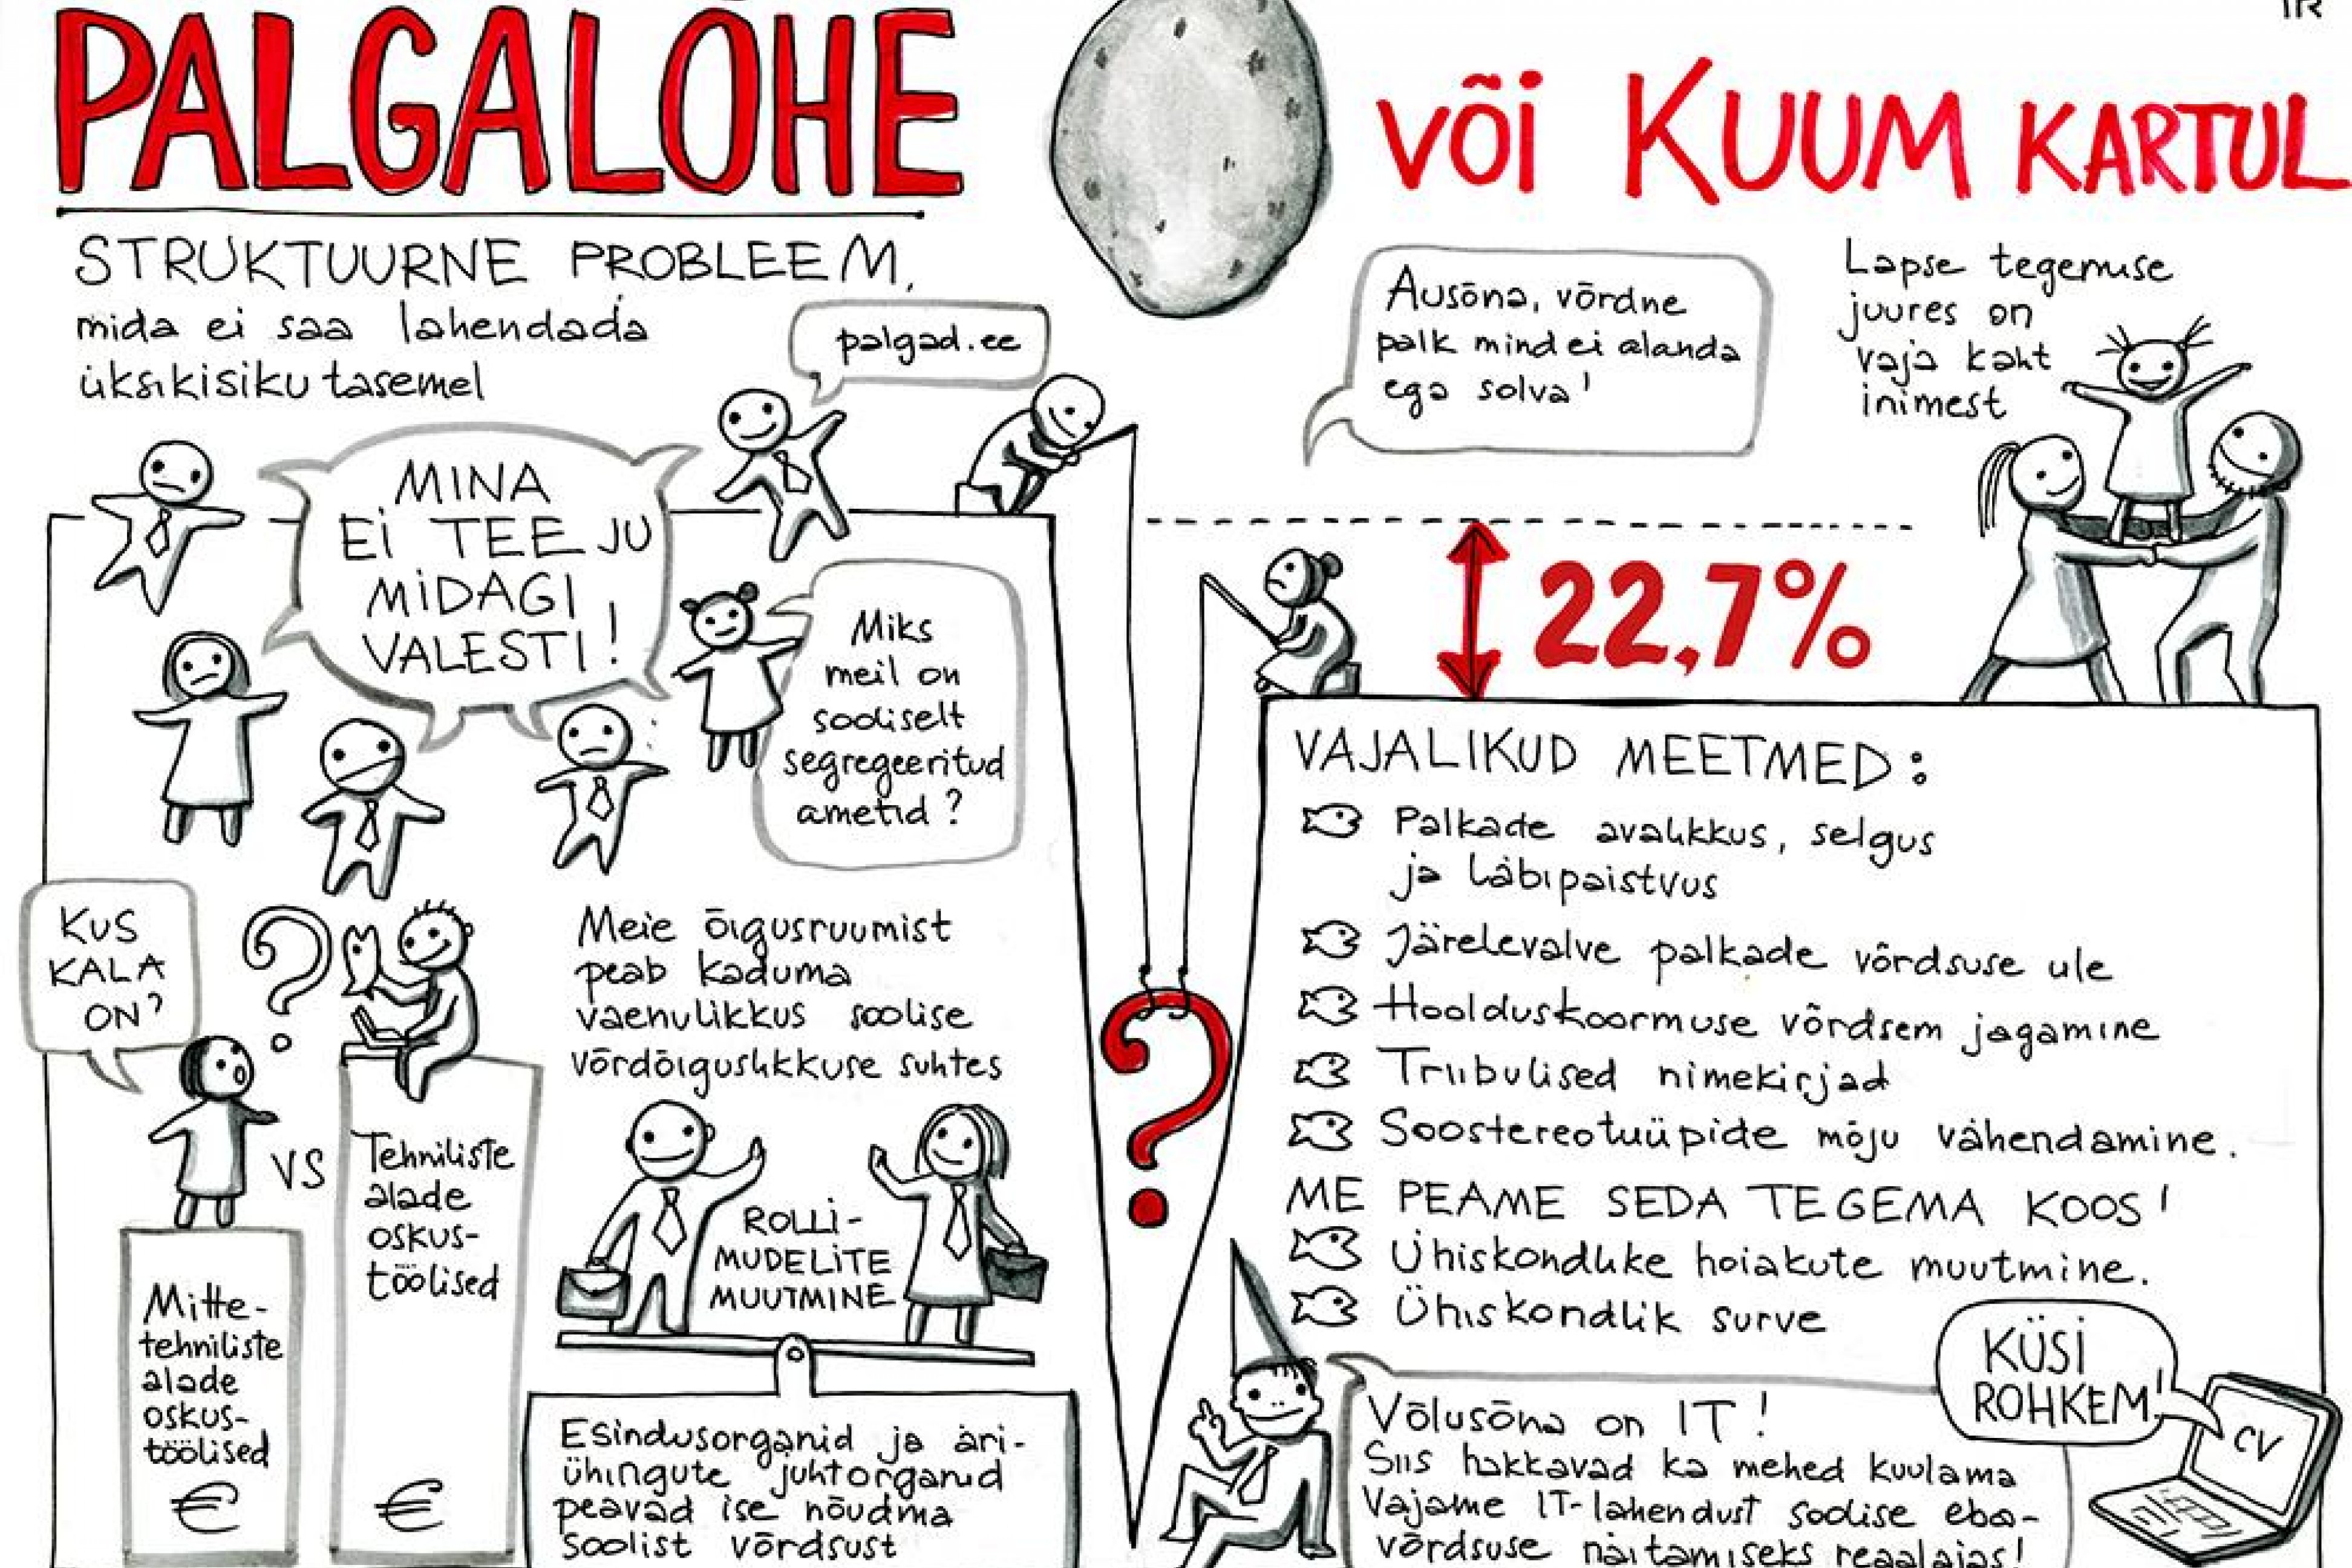 PALGALÕHE
või KUUM KARTUL
STRUKTUURNE PROBLEEM,
mida ei saa lahendada
üksikisiku tasemel
palgad.ee
Ausõna, võrdne
palk mind ei alanda
ega solva!
Lapse tegemuse
juures on
vaja kaht
inimest
MINA
EI TEE JU
MIDAGI
VALESTI!
Miks
meil on
sooliselt
segregeeritud
ametid?
22,7%
KUS
KALA
ON?
?
VS
Mitte-
tehniliste
alade
oskus-
töölised
€
Tehniliste
alade
oskus-
töölised
€
Meie õigusruumist
peab kaduma
vaenulikkus soolise
võrdõiguslikkuse suhtes
ROLLI-
MUDELITE
MUUTMINE
Esindusorganid ja äri-
ühingute juhtorganid
peavad ise nõudma
soolist võrdsust
?
VAJALIKUD MEETMED:
Palkade avalikkus, selgus
ja läbipaistvus
Järelevalve palkade võrdsuse üle
Hoolduskoormuse võrdsem jagamine
Triibulised nimekirjad
Soostereotüüpide mõju vähendamine.
ME PEAME SEDA TEGEMA KOOS!
Ühiskondlike hoiakute muutmine.
Ühiskondlik surve
Võlusõna on IT!
Siis hakkavad ka mehed kuulama
Vajame IT-lahendust soolise eba-
võrdsuse näitamiseks reaalajas!
KÜSI
ROHKEM!
CV